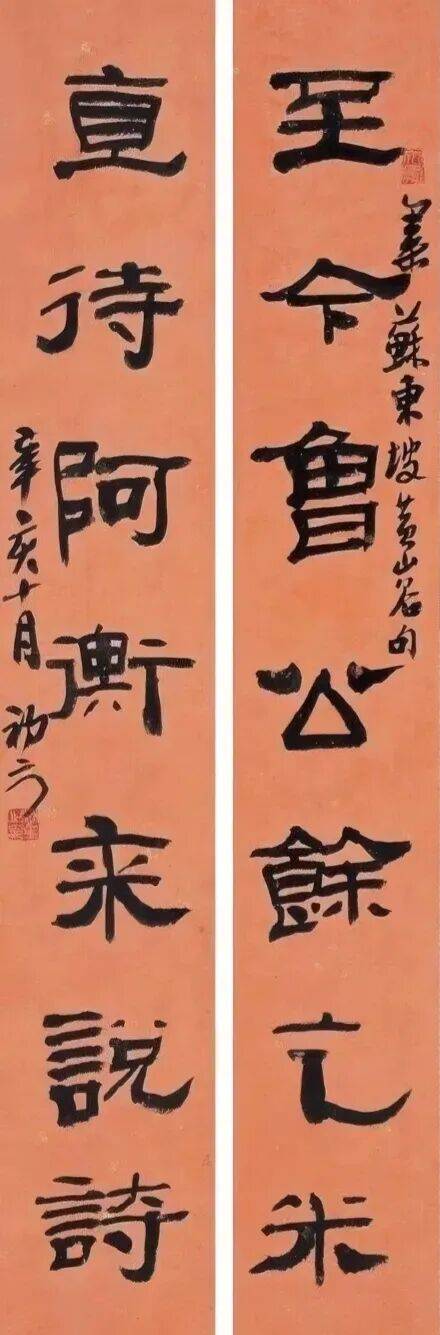 至今魯公餘乞米
集蘇東坡黄山谷句
直待阿衡來說詩
辛亥十月